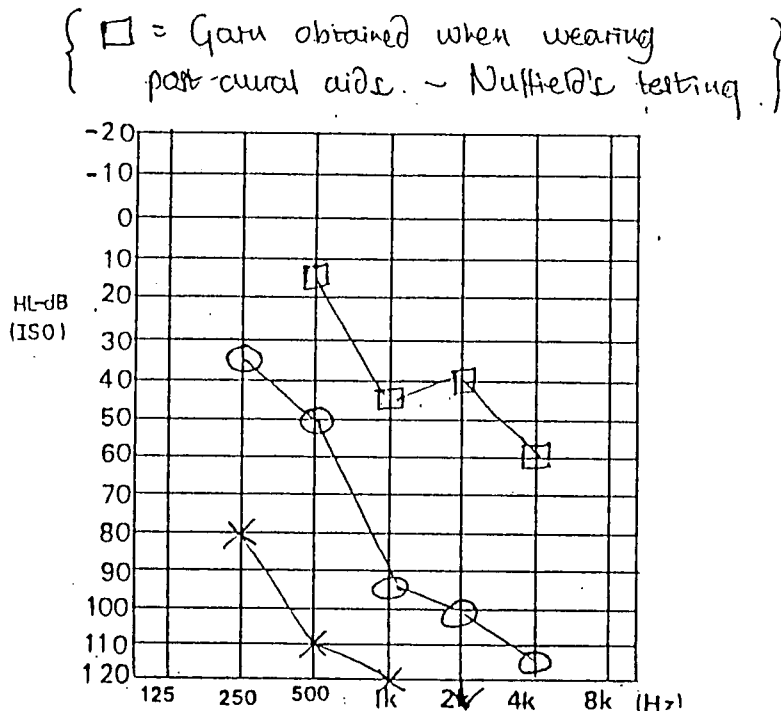 □ = Gain obtained when wearing
post-aural aids. - Nuffield's testing
-20
-10
0
10
20
30
40
50
60
70
80
90
100
110
120
HL-dB
(ISO)
125 250 500 1k 2k 4k 8k (Hz)